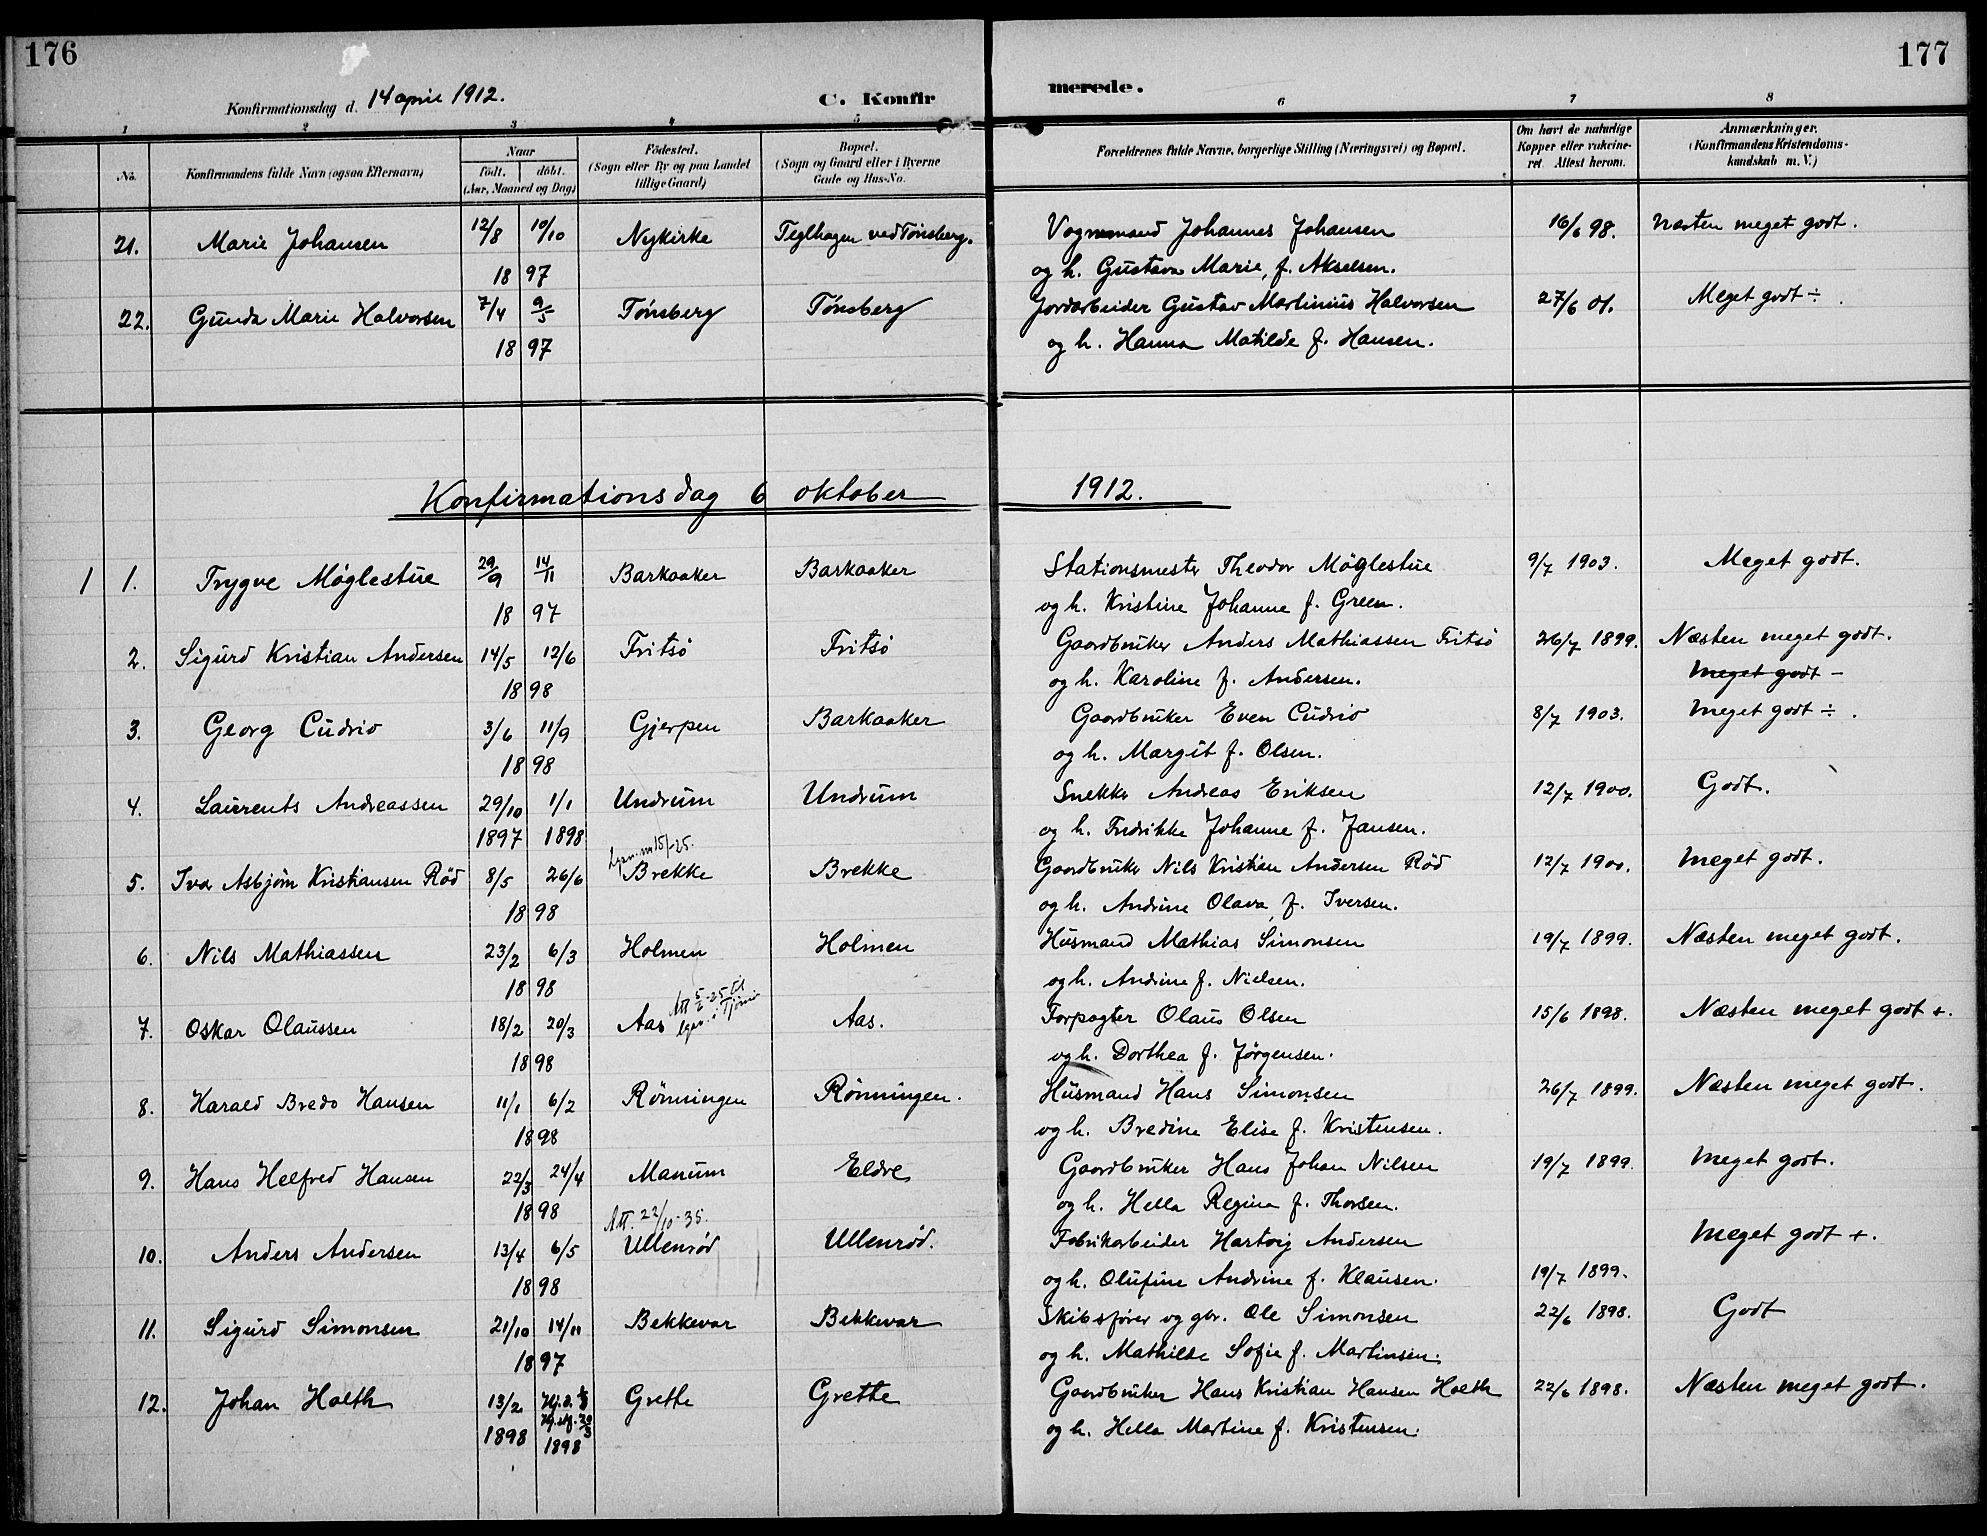 176
177
Konfirmationsdag d. 14 april 1912.
C. Konfir
merede.
1 2 3 4 5 6 7 8
No.
Konfirmandens fulde Navn (ogsaa Efternavn)
Naar
födt. döbt.
(Aar, Maaned og Dag)
Födested.
(Sogn eller By og paa Landet
tillige Gaard)
Bopæl.
(Sogn og Gaard eller i Byerne
Gade og Hus-No.
Forældrenes fulde Navne, borgerlige Stilling (Næringsvei) og Bopæl.
Om havt de naturlige
Kopper eller vakcine-
ret. Attest herom.
Anmærkninger.
(Konfirmandens Kristendoms-
kundskab m. V.)
21. Marie Johansen 12/8 10/10 Nykirke Teglhagen ved Tönsberg. Vognmand Johannes Johansen 16/6 98. Næsten meget godt.
18 97 og h. Gustava Marie, f. Akselsen.
22. Gunda Marie Halvorsen 7/4 9/5 Tönsberg Tönsberg Jordarbeider Gustav Martinius Halvorsen 27/6 01. Meget godt ÷.
18 97 og h. Hanna Matilde f. Hansen.
Konfirmationsdag 6 oktober 1912.
1 1. Trygve Møglestue 29/9 14/11 Barkaaker Barkaaker Stationsmester Theodor Møglestue 9/7 1903. Meget godt.
18 97 og h. Kristine Johanne f. Green.
2. Sigurd Kristian Andersen 14/5 12/6 Fritsö Fritsö Gaardbruker Anders Mathiassen Fritsö 26/7 1899. Næsten meget godt.
18 98 og h. Karoline f. Andersen. Meget godt –
3. Georg Cudrio 3/6 11/9 Gjerpen Barkaaker Gaardbruker Even Cudrio 8/7 1903. Meget godt ÷.
18 98 og h. Margit f. Olsen.
4. Laurents Andreassen 29/10 1/1 Undrum Undrum Snekker Andreas Eriksen 12/7 1900. Godt.
1897 1898 og h. Fredrikke Johanne f. Jansen.
5. Ivar Asbjørn Kristiansen Rød 8/5 26/6 Brekke Brekke Gaardbruker Nils Kristian Andersen Rød 12/7 1900. Meget godt.
18 98 og h. Andrine Olava f. Iversen.
6. Nils Mathiassen 23/2 6/3 Holmen Holmen Husmand Mathias Simonsen 19/7 1899. Næsten meget godt.
18 98 og h. Andrine f. Nielsen.
Att 5/2-25 til
lysn. i Tjømø
7. Oskar Olaussen 18/2 20/3 Aas Aas. Forpagter Olaus Olsen 15/6 1898. Næsten meget godt +.
18 98 og h. Dorthea f. Jørgensen.
8. Harald Bredo Hansen 11/1 6/2 Rönningen Rönningen. Husmand Hans Simonsen 26/7 1899. Næsten meget godt.
18 98 og h. Bredine Elise f. Kristensen.
9. Hans Helfred Hansen 22/3 24/4 Manum Eldre Gaardbruker Hans Johan Nilsen 19/7 1899. Meget godt.
18 98 og h. Hella Regine f. Thorsen.
Att. 22/10-35.
10. Anders Andersen 13/4 6/5 Ullenrød Ullenrød. Fabrikarbeider Hartvig Andersen Meget godt +.
18 98 og h. Olufine Andrine f. Klausen. 19/7 1899.
11. Sigurd Simonsen 21/10 14/11 Bekkevar Bekkevar Skibsfører og gbr. Ole Simonsen 22/6 1898. Godt
18 97 og h. Mathilde Sofie f. Martinsen.
12. Johan Holth 13/2 Hj.d. Grette Grette Gaardbruker Hans Kristian Hansen Holth 22/6 1898. Næsten meget godt.
1898 1898 og h. Hella Martine f. Kristensen.